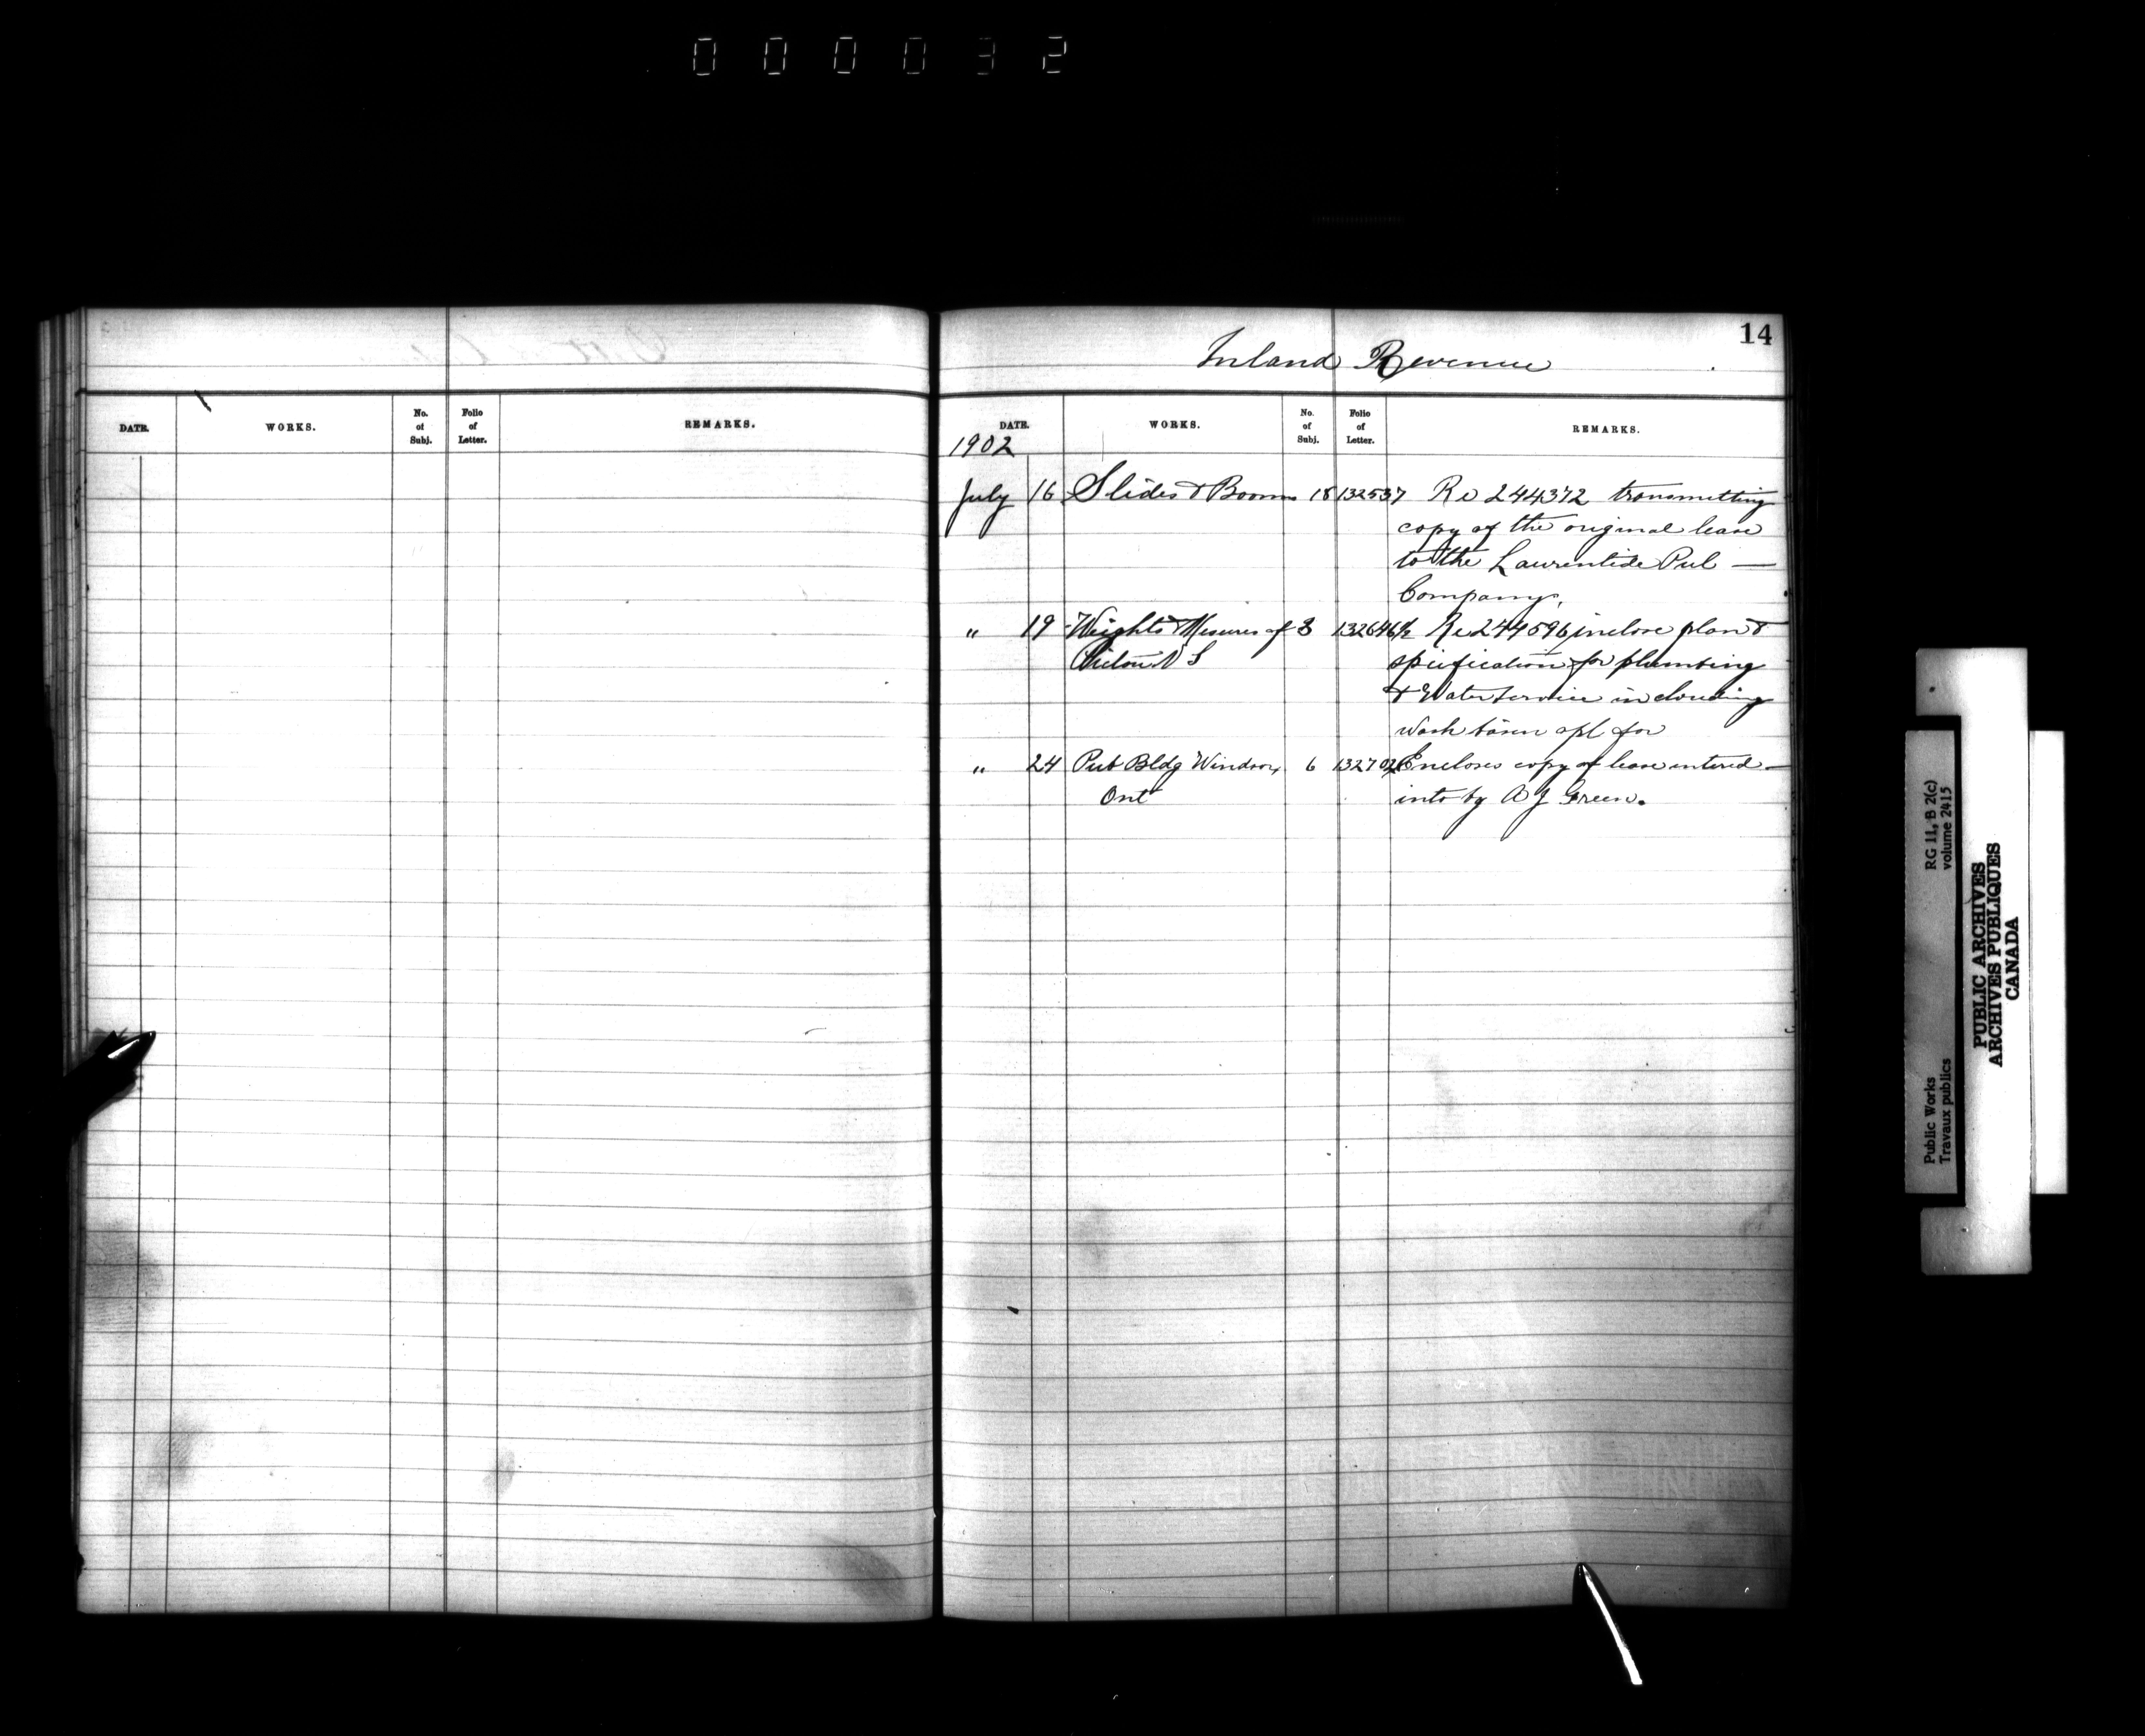 0 0 0 0 3 2
14
Inland Revenue
DATE. WORKS. No. of Subj. Folio of Letter. REMARKS.
DATE. WORKS. No. of Subj. Folio of Letter. REMARKS.
1902
July 16 Slides & Booms 18 132537 Re 244372 transmitting
copy of the original lease
to the Laurentide Pul —
Company.
" 19 Weights & Mesures of 3 132646½ Re 244596 inclose plan &
Picton N S specification for plumbing
& Water service in clouding
wash basin apl for
" 24 Pub Bldg Windsor 6 132702 Encloses copy of lease intered —
Ont into by A J Green.
Public Works RG 11, B 2(c)
Travaux publics volume 2415
PUBLIC ARCHIVES
ARCHIVES PUBLIQUES
CANADA